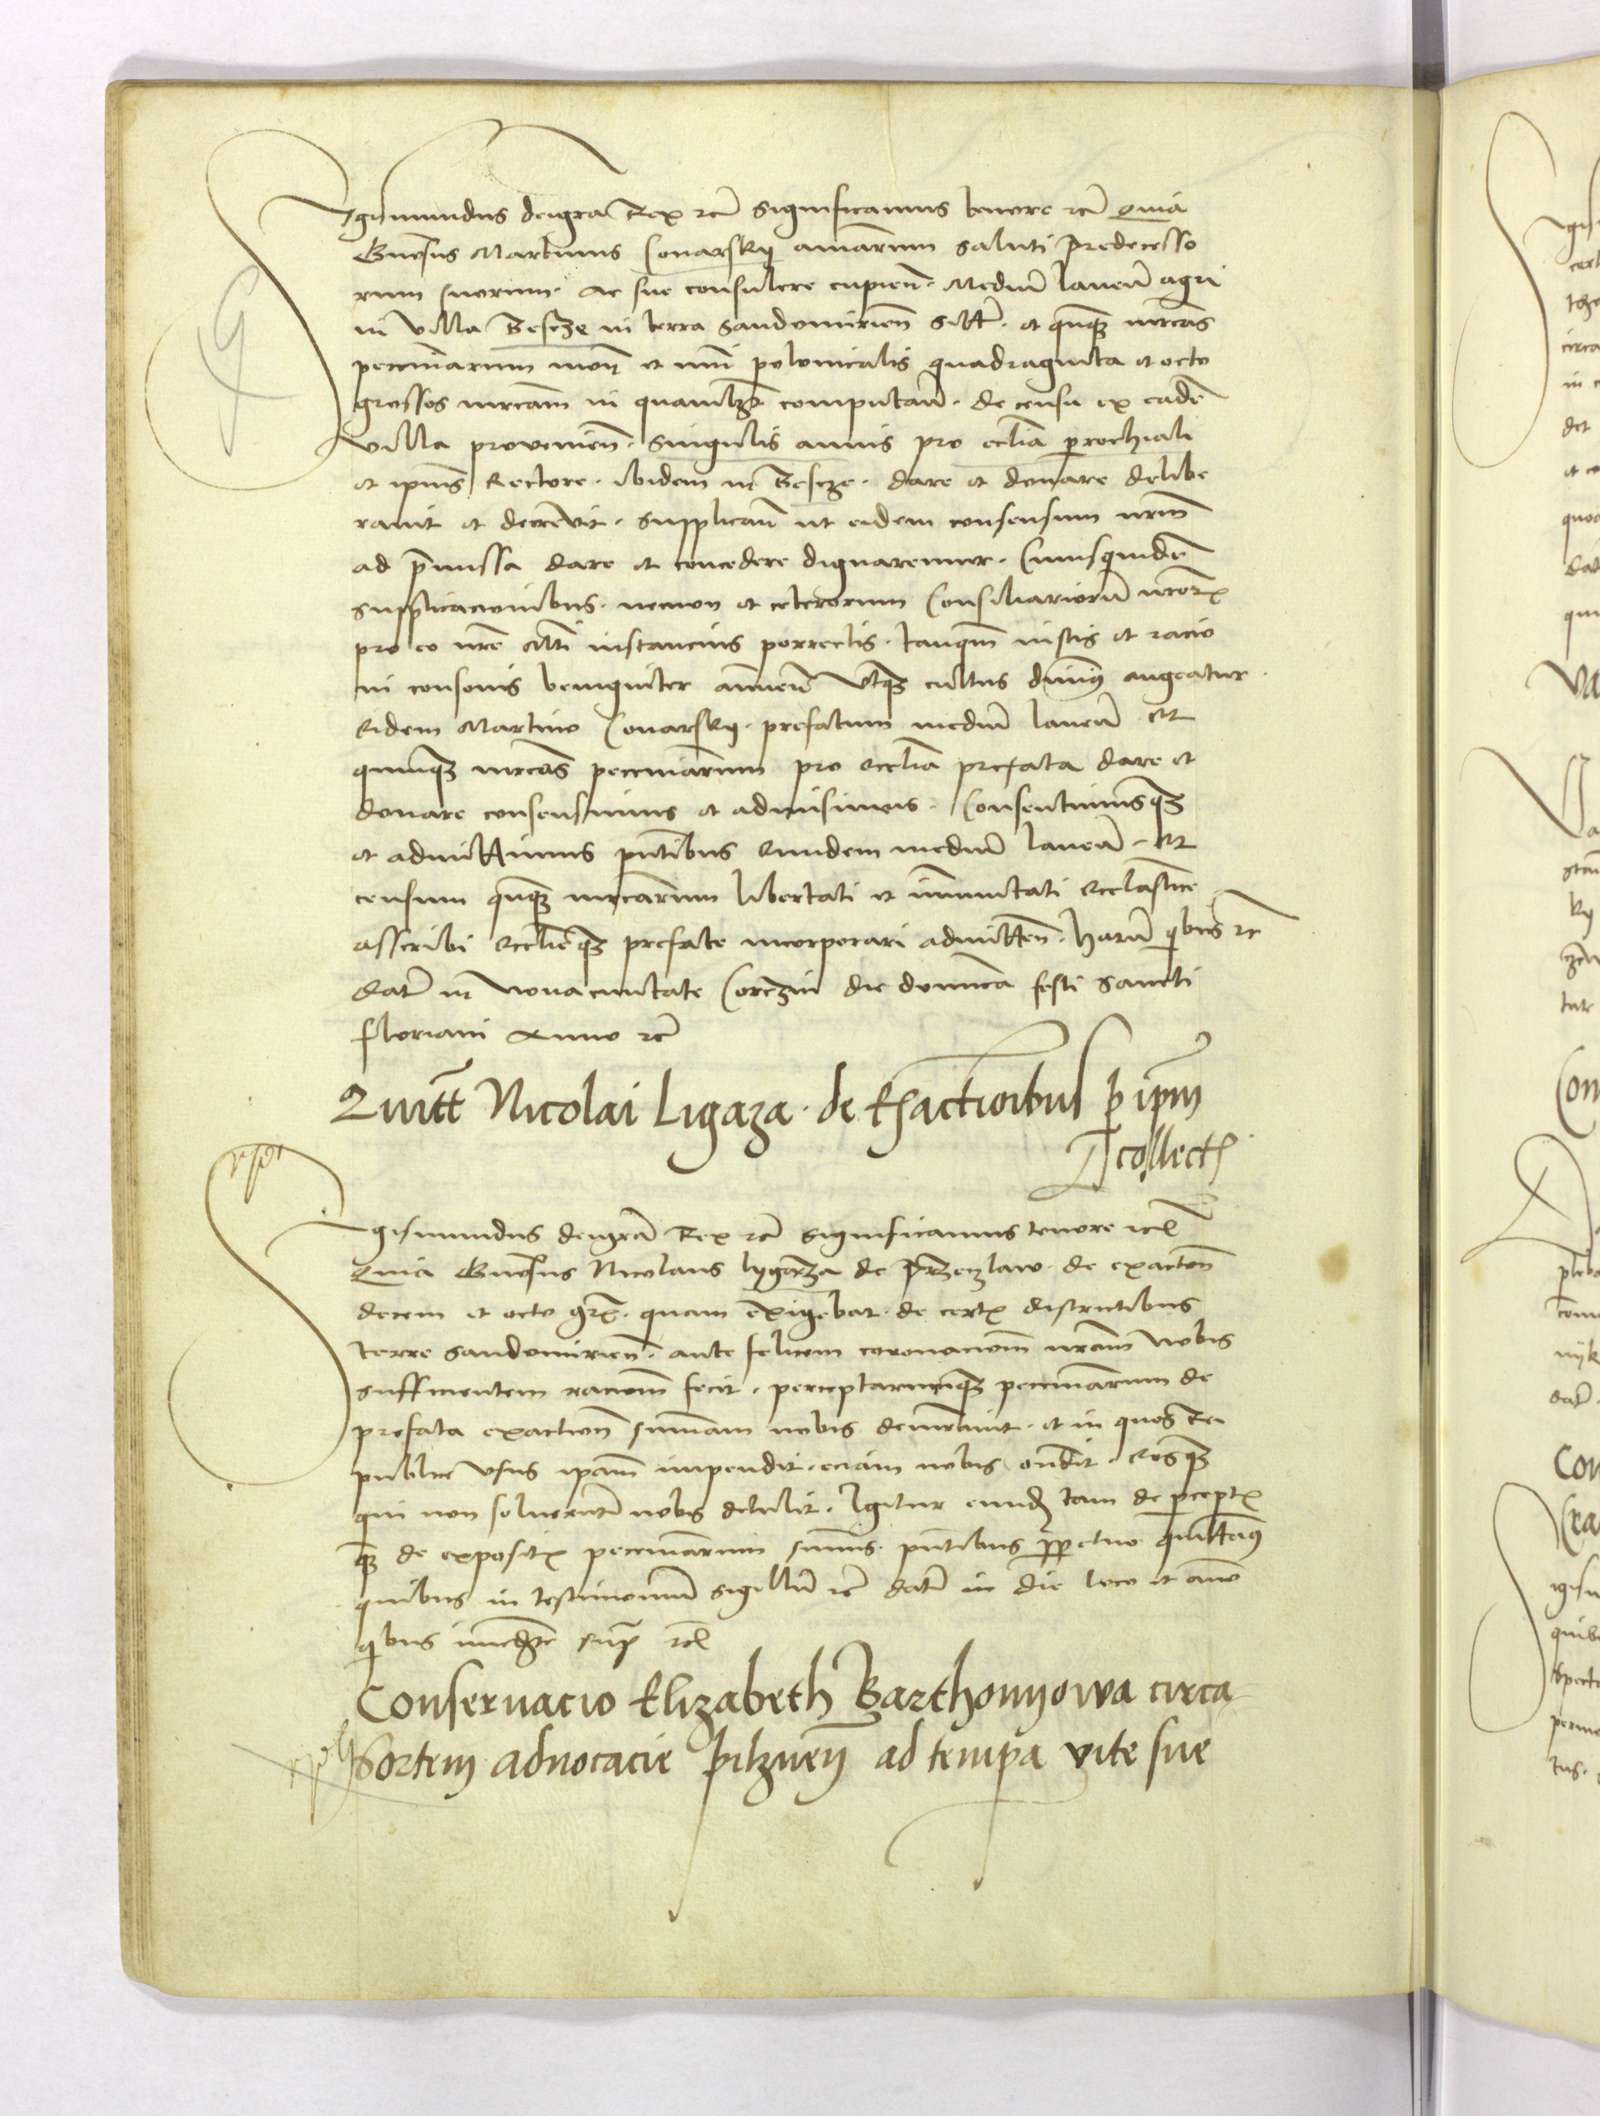 Sigismundus dei gra Rex etc significamus tenore etc Quia
Gnosus Martinus Conarskij animarum saluti predecesso
rum suorum. ac sue consulere cupien. Medium laneum agri
in villa Besczye in terra Sandomirien sitt. et quinqz mrcas
pecuniarum mon et nui polonicalis quadraginta et octo
grossos mrcam in quamlzbet computan. de censu ex eadem
villa provenien. Singulis annis pro ecclia parochiali
et ipius Rectore. ibidem in Bescze. dare et donare delibe
ravit et decrevit. supplicavit ut eidem consensum nrum
ad pmissa dare et concedere dignaremur. Cuiusquidem
supplicacionibus. necnon et ceterorum Consiliariorum nror
pro eo nre Mti instancius porrectis. tanqm iustis et racio
ni consonis benigniter annuen Utqz cultus divinus augeatur.
Eidem Martino Conarskij. prefatum medium laneum et
quinqz mrcas pecuniarum pro ecclia prefata dare et
donare consensimus et admisimus. Consentimusqz
et admittimus pntibus Eundem medium laneum. et
censum quinqz mrcarum libertati et imunitati ecclastice
asscribi ecclieqz prefate incorporari admitten. harum qbus etc
Dat in Nova civitate Corczin die dominca festi sancti
floriani Anno etc
Quitt Nicolai Ligaza. de Exactioibus p ipm
collect
Sigismundus dei gra Rex etc Significamus tenore etc
Quia Gnosus Nicolaus lygaza de Przeczlaw. de exaction
decem et octo gr. quam exigebat. de cert districtibus
terre Sandomirien. ante felicem coronacionem nram Nobis
sufficientem racionem fecit. perceptarumqz pecuniarum de
prefata exaction sumam nobis denumeravit. et in quos Rei
publice usus ipam impendit. eciam nobis ondit. Eosqz
qui non solverunt nobis detulit. Igitur eund tam de percept
qz de exposit pecuniarum sumis. pntibus ppetuo quittamus
quibus in testimonium sigillum etc Dat in die loco et anno
qbus immediate supra etc
Conservacio Elizabeth Barthomyowa circa
Sortem advocacie pilznen ad tempa vite sue